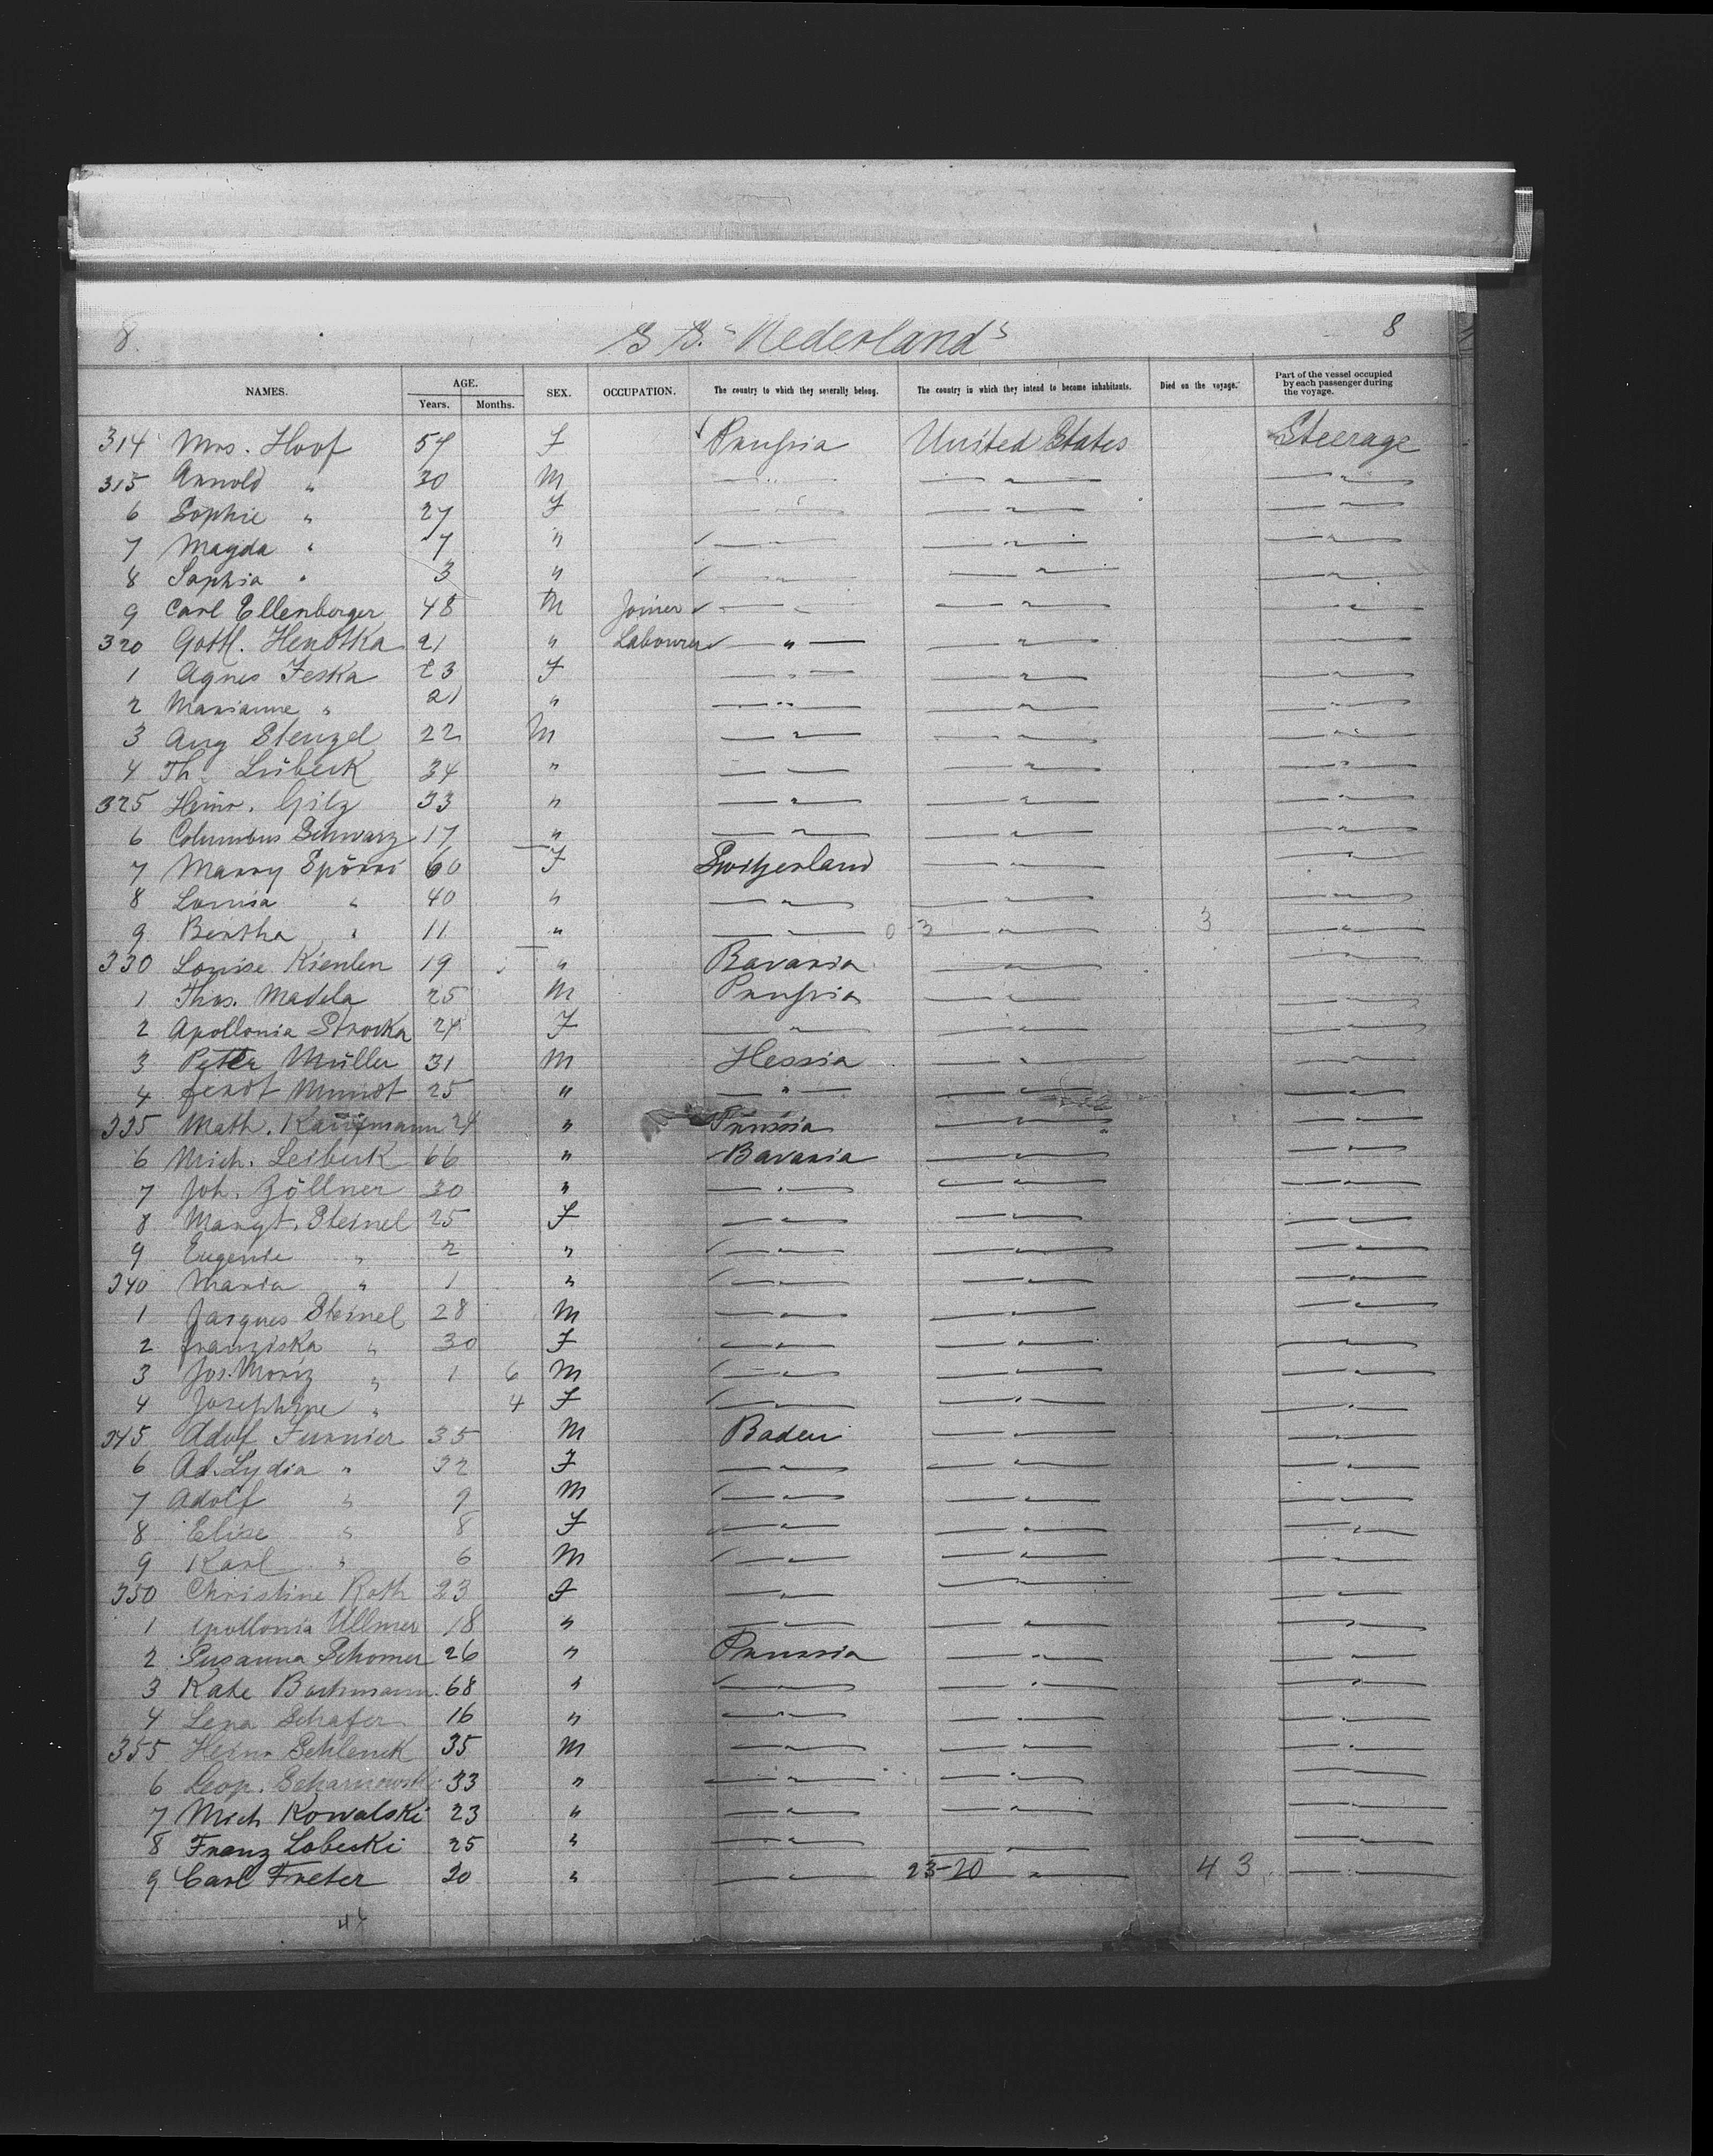 8. S.S. "Nederland" 8
NAMES. AGE. Years. Months. SEX. OCCUPATION. The country to which they severally belong. The country in which they intend to become inhabitants. Died on the voyage. Part of the vessel occupied by each passenger during the voyage.
314 Mrs. Hoof 54 F Prussia United States Steerage
315 Arnold " 30 M " " "
6 Sophie " 27 F " " "
7 Magda " 7 " " " "
8 Sophia " 3 " " " "
9 Carl Ellenberger 48 M Joiner " " "
320 Gottl. Hendtka 21 " Labourer " " "
1 Agnes Jeska 23 F " " "
2 Marianne " 21 " " " "
3 Aug Stenzel 22 M " " "
4 Th. Lübeck 34 " " "
325 Heinr. Gilz 33 " " " "
6 Columbus Schwarz 17 " " " "
7 Marry Spörri 60 F Switzerland "
8 Louisa " 40 " " " "
9 Bertha " 11 " " 0-3 " 3 "
330 Louise Kienlen 19 " Bavaria " "
1 Ths. Madela 25 M Prussia " "
2 Apollonia Strocka 24 F " " "
3 Peter Müller 31 M Hessia " "
4 Mundt 25 " " " "
335 Math. Kaufmann 24 " Prussia " "
6 Mich. Leibeck 66 " Bavaria " "
7 Joh. Zöllner 30 " " " "
8 Margt. Steinel 25 F " " "
9 Eugenie " 2 " " " "
340 Maria " 1 " " " "
1 Jacques Steinel 28 M " " "
2 Franziska " 30 F " " "
3 Jos. Moriz " 1 6 M " " "
4 Josephine " 4 F " " "
345 Adolf Furnier 35 M Baden " "
6 Ad. Lydia " 32 F " " "
7 Adolf " 9 M " " "
8 Elise " 8 F " " "
9 Karl " 6 M " " "
350 Christine Roth 23 F " " "
1 Apollonia Ullmer 18 " " " "
2 Susanna Schomer 26 " Prussia " "
3 Kate Bachmann 68 " " " "
4 Lena Schafer 16 " " " "
355 Heinr Schlenck 35 M " " "
6 Leop. 33 " " " "
7 Mich Kowalski 23 " " " "
8 Franz Lobecki 25 " " " "
9 Carl Freter 30 " " 23-20 " 4 3 "